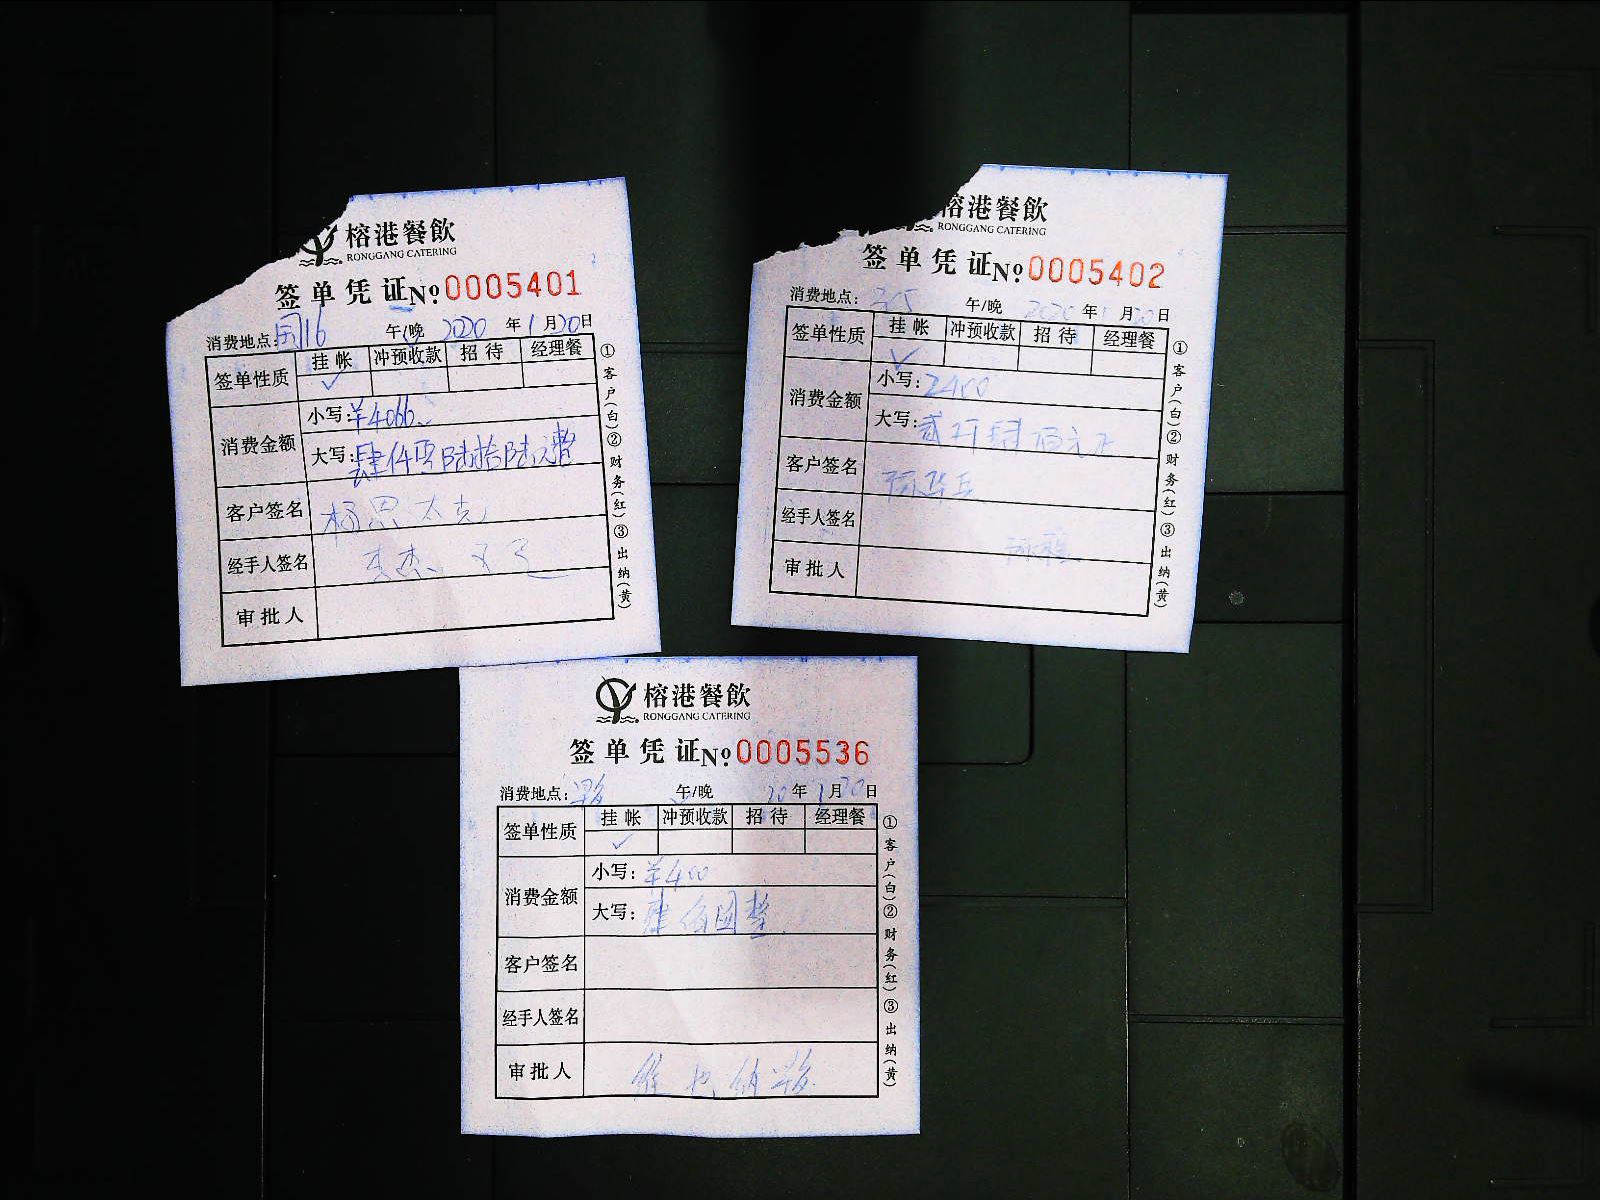 榕港餐飲
RONGGANG CATERING
签单凭证 No 0005401
消费地点: 国16 午/晚 2020 年 1 月 20 日
签单性质 挂帐 冲预收款 招待 经理餐
✓
消费金额 小写: ¥4066.
大写: 肆仟零陆拾陆元整
客户签名
经手人签名
审批人
①客户(白)②财务(红)③出纳(黄)
榕港餐飲
RONGGANG CATERING
签单凭证 No 0005402
消费地点: 午/晚 2020 年 1 月 20 日
签单性质 挂帐 冲预收款 招待 经理餐
✓
消费金额 小写: 2400
大写: 贰仟肆佰元正
客户签名
经手人签名
审批人
①客户(白)②财务(红)③出纳(黄)
榕港餐飲
RONGGANG CATERING
签单凭证 No 0005536
消费地点: 午/晚 20 年 1 月 20 日
签单性质 挂帐 冲预收款 招待 经理餐
✓
消费金额 小写: ¥400
大写: 肆佰圆整
客户签名
经手人签名
审批人
①客户(白)②财务(红)③出纳(黄)